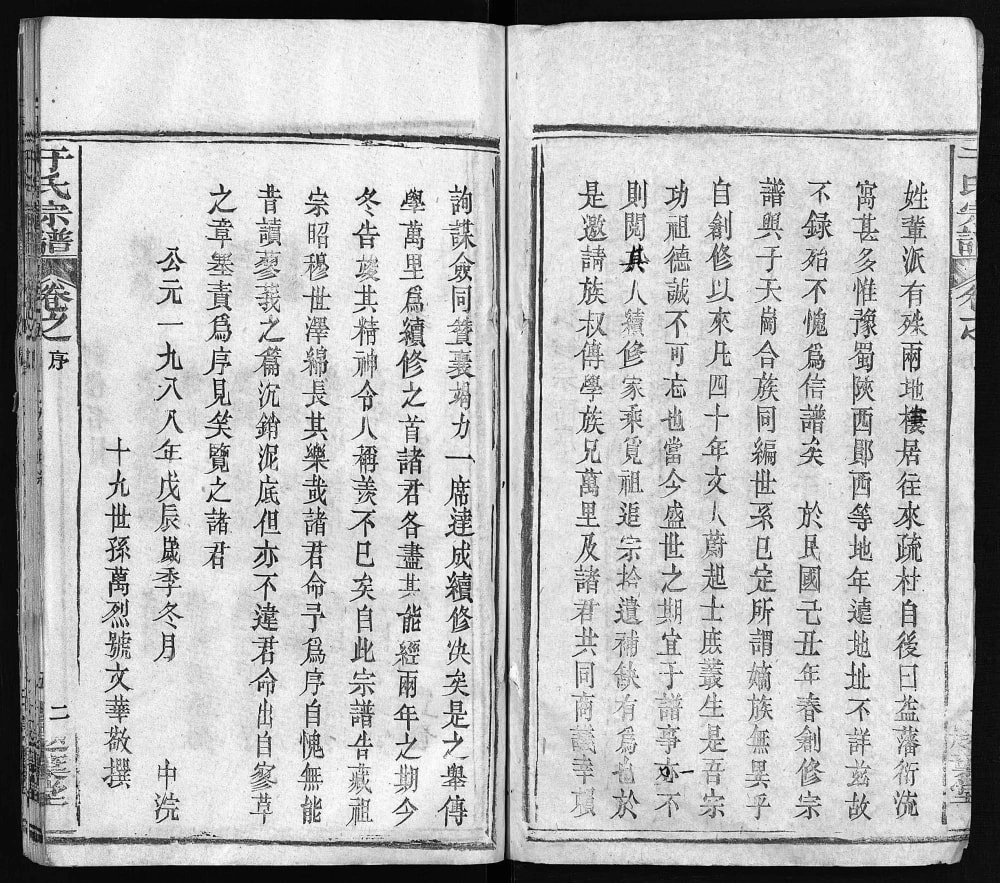 姓輩派有殊兩地棲居往來疏杜自後曰益藩衍流
寓甚多惟豫蜀陝西鄖西等地年遠地址不詳茲故
不録殆不愧爲信譜矣 於民國己丑年春創修宗
譜興子天崗合族同編世系已定所謂嫡族無異乎
自創修以來凡四十年文人蔚起士庶叢生是吾宗
功祖德誠不可忘也當今盛世之期宜于譜事亦不
則閱其人續修家乘覓祖追宗拾遺補缺有爲也於
是邀請族叔傳學族兄萬里及諸君共同商議幸須
詢謀僉同贊襄竭力一席達成續修決矣是之舉傳
學萬里爲續修之首諸君各盡其能經兩年之期今
冬告竣其精神令人稱羨不已矣自此宗譜告藏祖
宗昭穆世澤綿長其樂哉諸君命予爲序自愧無能
昔讀蓼莪之篇沉銷泥底但亦不違君命出自寥草
之章塞責爲序見笑覽之諸君
公元一九八八年戊辰歲季冬月 中浣
十九世孫萬烈號文華敬撰
于氏宗譜 卷之 序 二